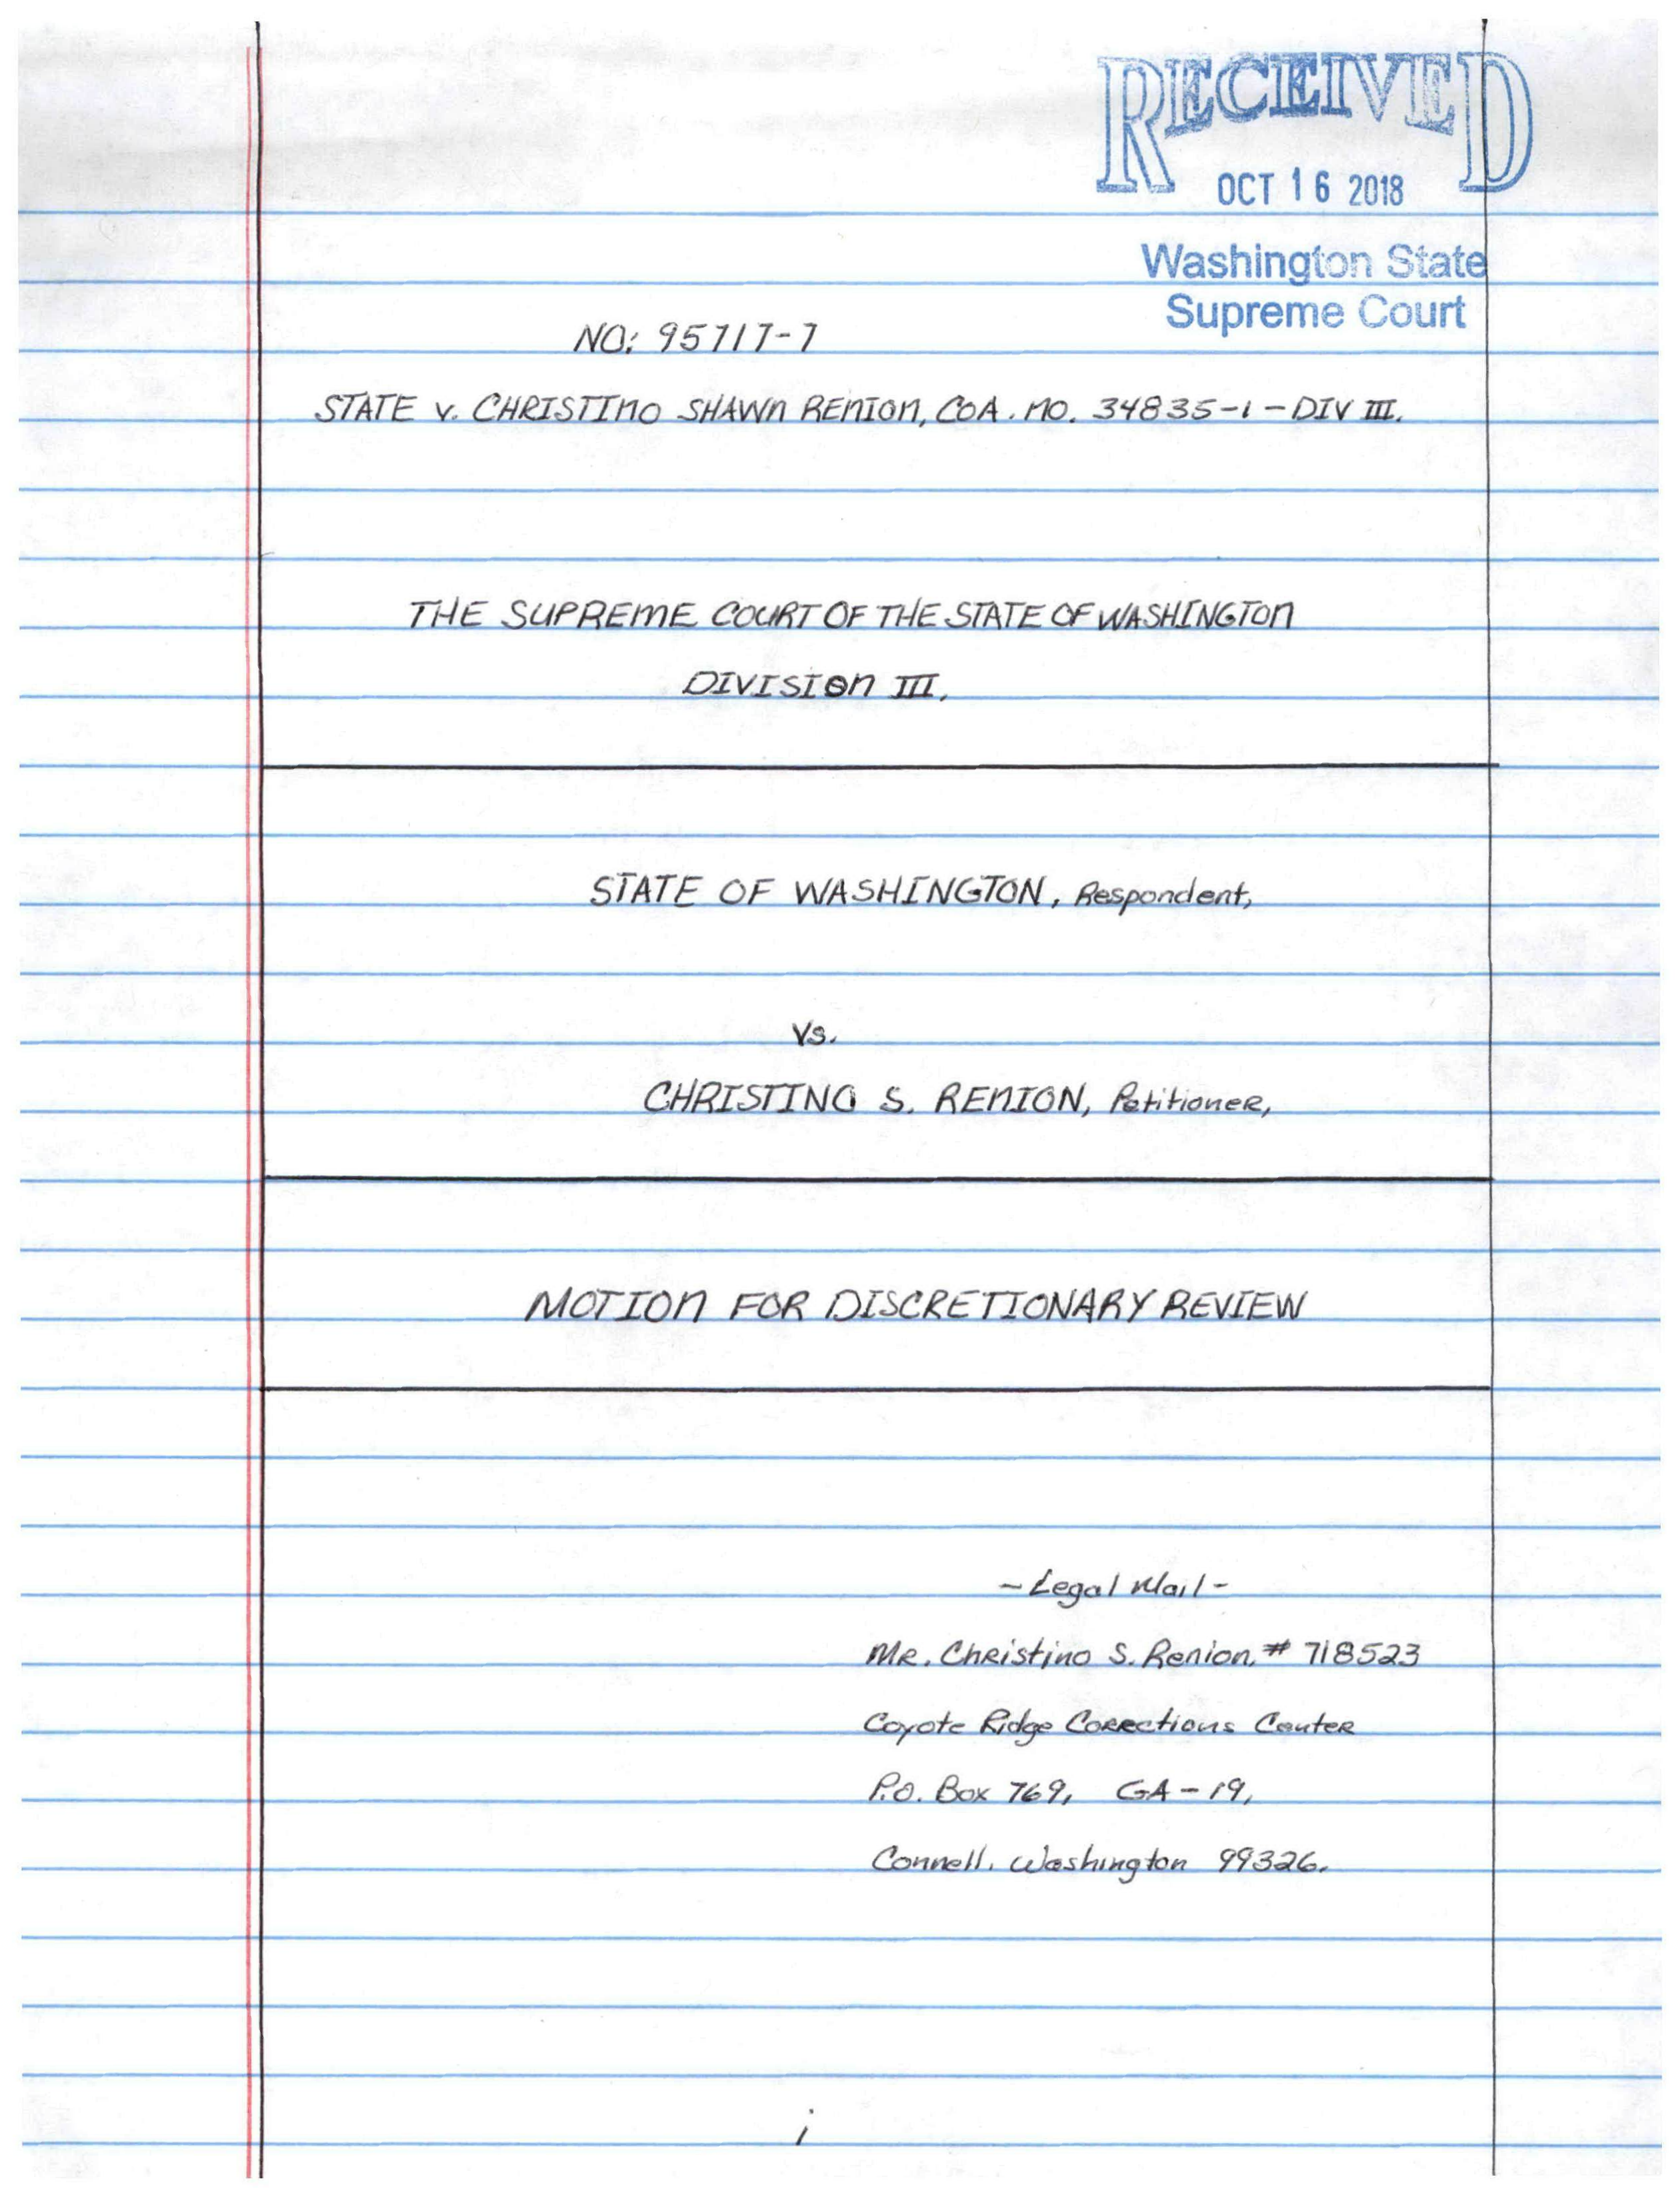 RECEIVED
OCT 16 2018
Washington State
Supreme Court
NO: 95717-7
STATE v. CHRISTINO SHAWN RENION, COA. NO. 34835-1-DIV III.
THE SUPREME COURT OF THE STATE OF WASHINGTON
DIVISION III.
STATE OF WASHINGTON, Respondent,
Vs.
CHRISTINO S. RENION, Petitioner,
MOTION FOR DISCRETIONARY REVIEW
-Legal Mail-
MR. Christino S. Renion, # 718523
Coyote Ridge Corrections Center
P.O. Box 769, GA-19,
Connell, Washington 99326.
i